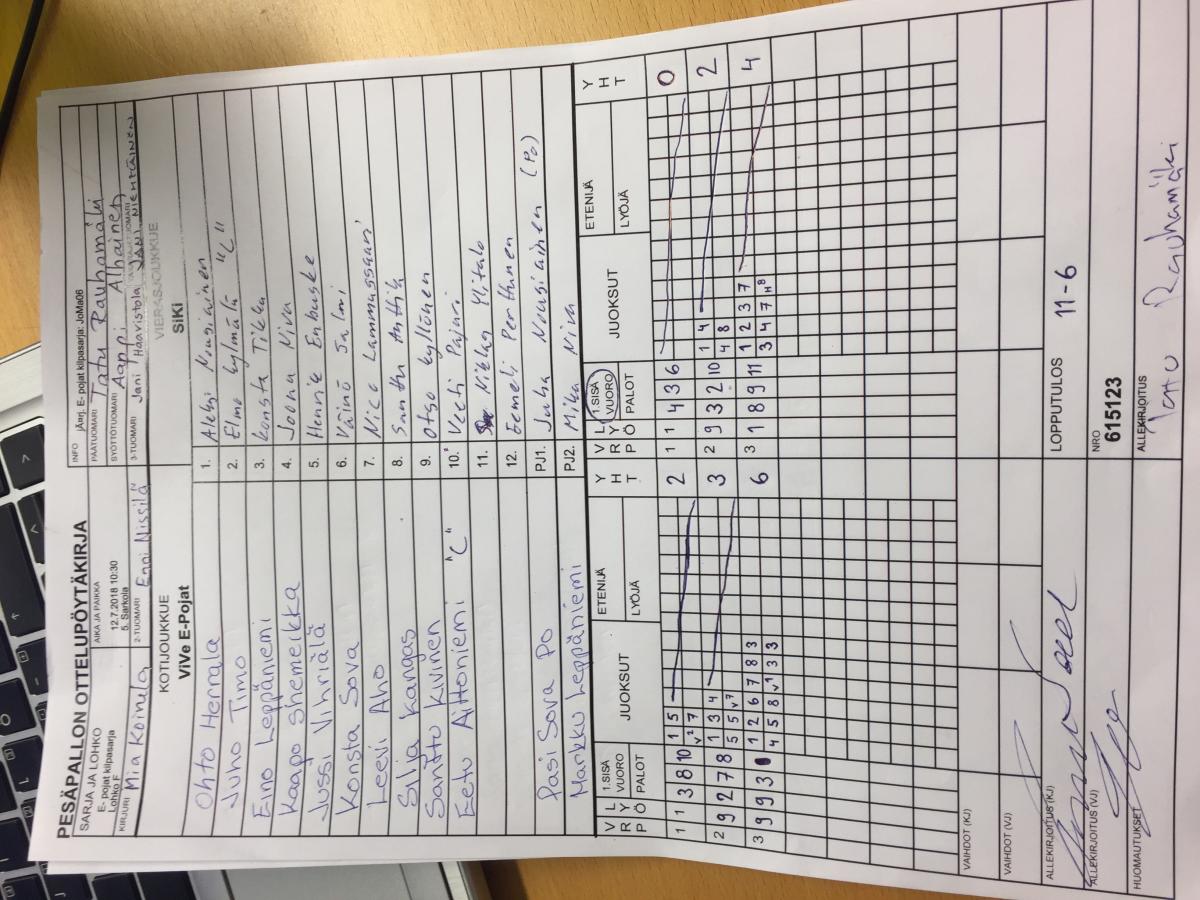 PESÄPALLON OTTELUPÖYTÄKIRJA
SARJA JA LOHKO
E- pojat kilpasarja
Lohko F
AIKA JA PAIKKA
12.7.2018 10:30
5. Sarkola
INFO jÄrrj. E- pojat kilpasarja: JoMa06
PÄÄTUOMARI Tatu Rauhamäki
SYÖTTÖTUOMARI Aappi Alhainen
KIRJURI Mia Koinela
2-TUOMARI Enni Nissilä
3-TUOMARI Jani Haavistola
KOTIJOUKKUE
ViVe E-Pojat
VIERASJOUKKUE
SiKi
Ohto Herrala 1. Aleksi Nousiainen
Juho Timo 2. Elmo Kylmälä "C"
Eino Leppäniemi 3. Konsta Tikka
Kaapo Shemeikka 4. Joona Niva
Jussi Vihriälä 5. Hennie Enbuske
Konsta Sova 6. Väinö Salmi
Leevi Aho 7. Nico Lammassaari
Silja Kangas 8. Santtu Anttila
Santtu Kivinen 9. Otso Kyllönen
Eetu Aittoniemi "C" 10. Veeti Pajari
11. Niklas Ylitalo
12. Eemeli Perttunen
Pasi Sova Po PJ1. Juha Nousiainen (Po)
Markku Leppäniemi PJ2. Mika Niva
V R P L Y Ö 1.SISÄ VUORO PALOT JUOKSUT ETENIJÄ LYÖJÄ Y H T
V R P L Y Ö 1.SISÄ VUORO PALOT JUOKSUT ETENIJÄ LYÖJÄ Y H T
1 1 3 8 10 1 5 2 1 1 4 3 6 0
v2 7
2 9 2 7 8 1 3 4 3 2 9 3 2 10 1 4 2
5 5 v7 4 8
3 9 9 3 1 2 6 7 8 3 6 3 1 8 9 11 1 2 3 7 4
4 5 8 v1 3 3 3 4 7 H8
VAIHDOT (KJ)
VAIHDOT (VJ)
ALLEKIRJOITUS (KJ)
LOPPUTULOS 11-6
ALLEKIRJOITUS (VJ)
NRO
615123
HUOMAUTUKSET
ALLEKIRJOITUS
Tatu Rauhamäki